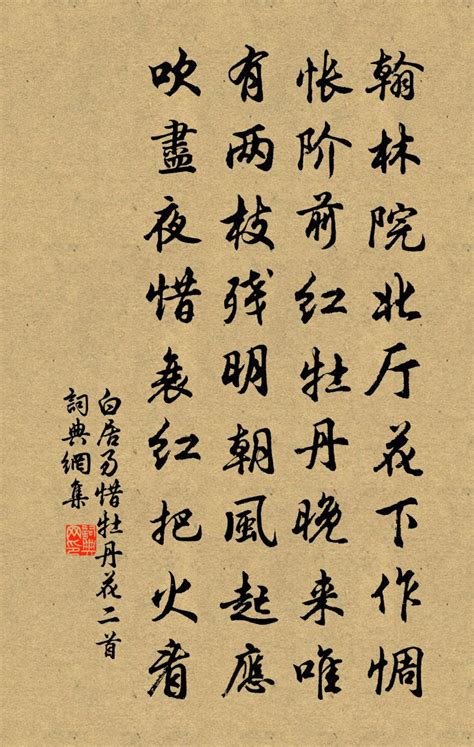 翰林院北厅花下作惆
怅阶前红牡丹晚来唯
有两枝残明朝風起應
吹盡夜惜衰红把火看
白居易惜牡丹花二首
詞典網集